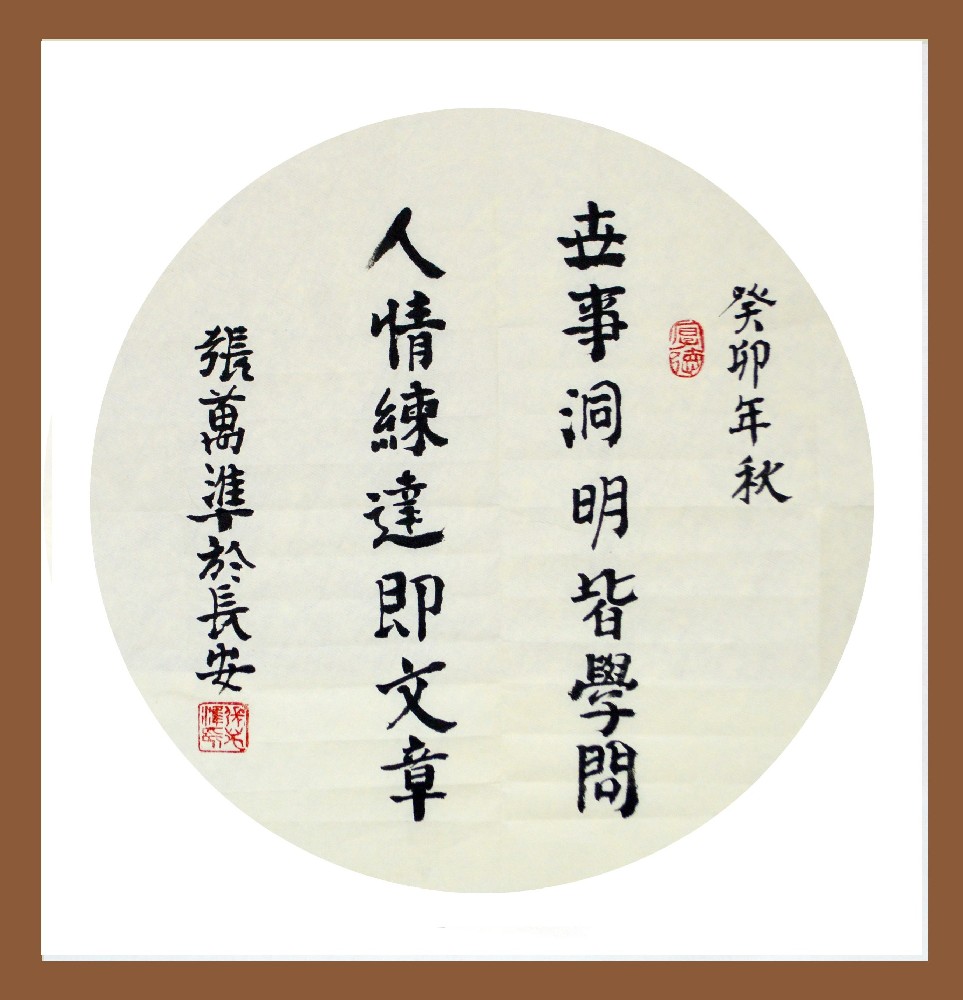 癸卯年秋
厚德
世事洞明皆學問
人情練達即文章
張萬準於長安